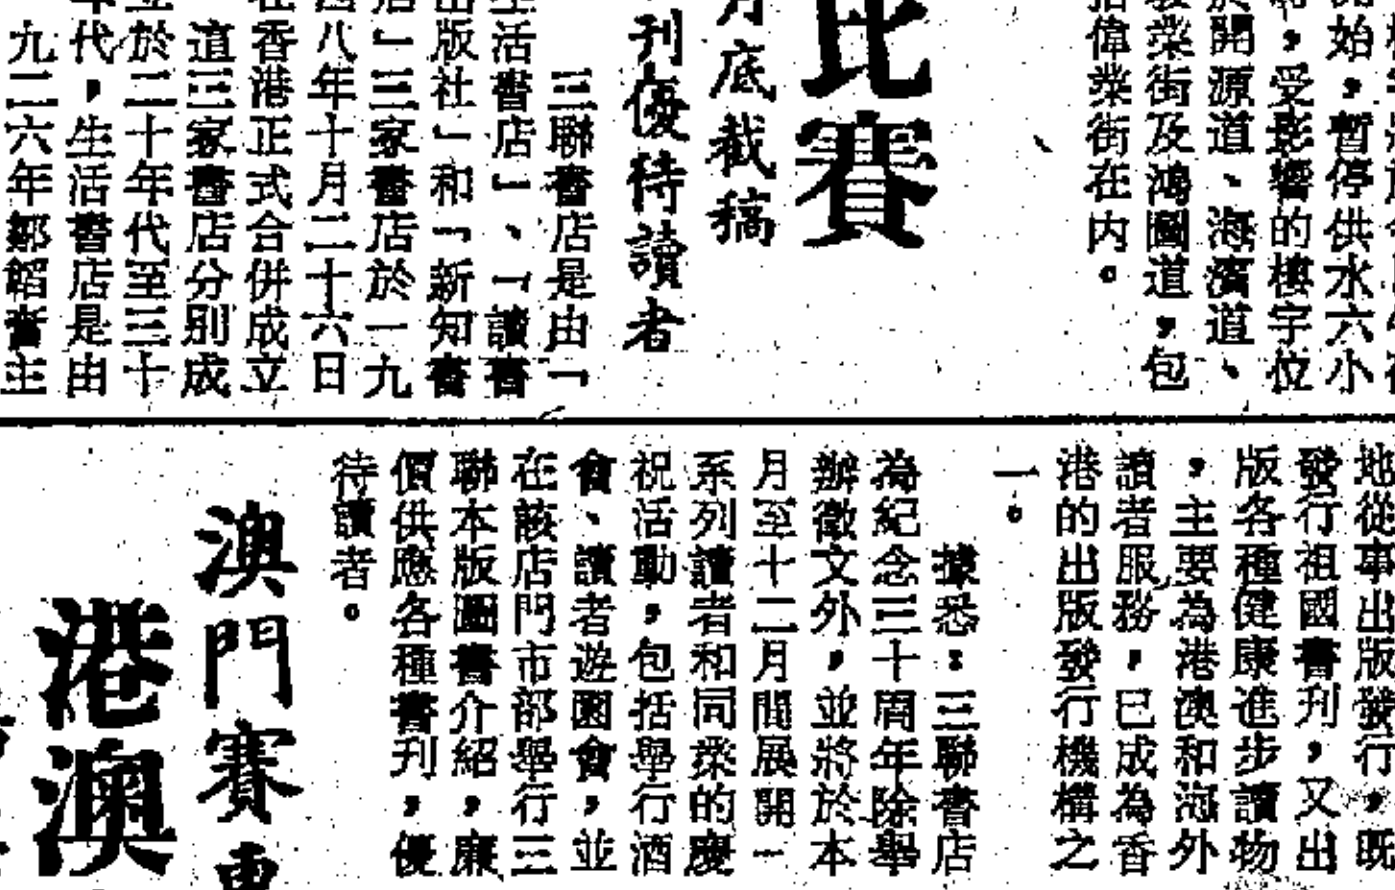 始，暫停供水六小
，受影響的樓宇位
開源道、海濱道、
業街及鴻圖道，包
偉業街在内。
比賽
月底截稿
刊優待讀者
三聯書店是由「
活書店」、「讀書
版社」和「新知書
店」三家書店於一九
四八年十月二十六日
在香港正式合併成立
這三家書店分別成
於二十年代至三十
年代，生活書店是由
九二六年鄒韜奮主
地從事出版發行，既
發行祖國書刊，又出
版各種健康進步讀物
，主要為港澳和海外
讀者服務，已成為香
港的出版發行機構之
一。
據悉：三聯書店
為紀念三十周年除舉
辦徵文外，並將於本
月至十二月間展開一
系列讀者和同業的慶
祝活動，包括舉行酒
會、讀者遊園會，並
在該店門市部舉行三
聯本版圖書介紹，廉
價供應各種書刊，優
待讀者。
澳門賽
港澳